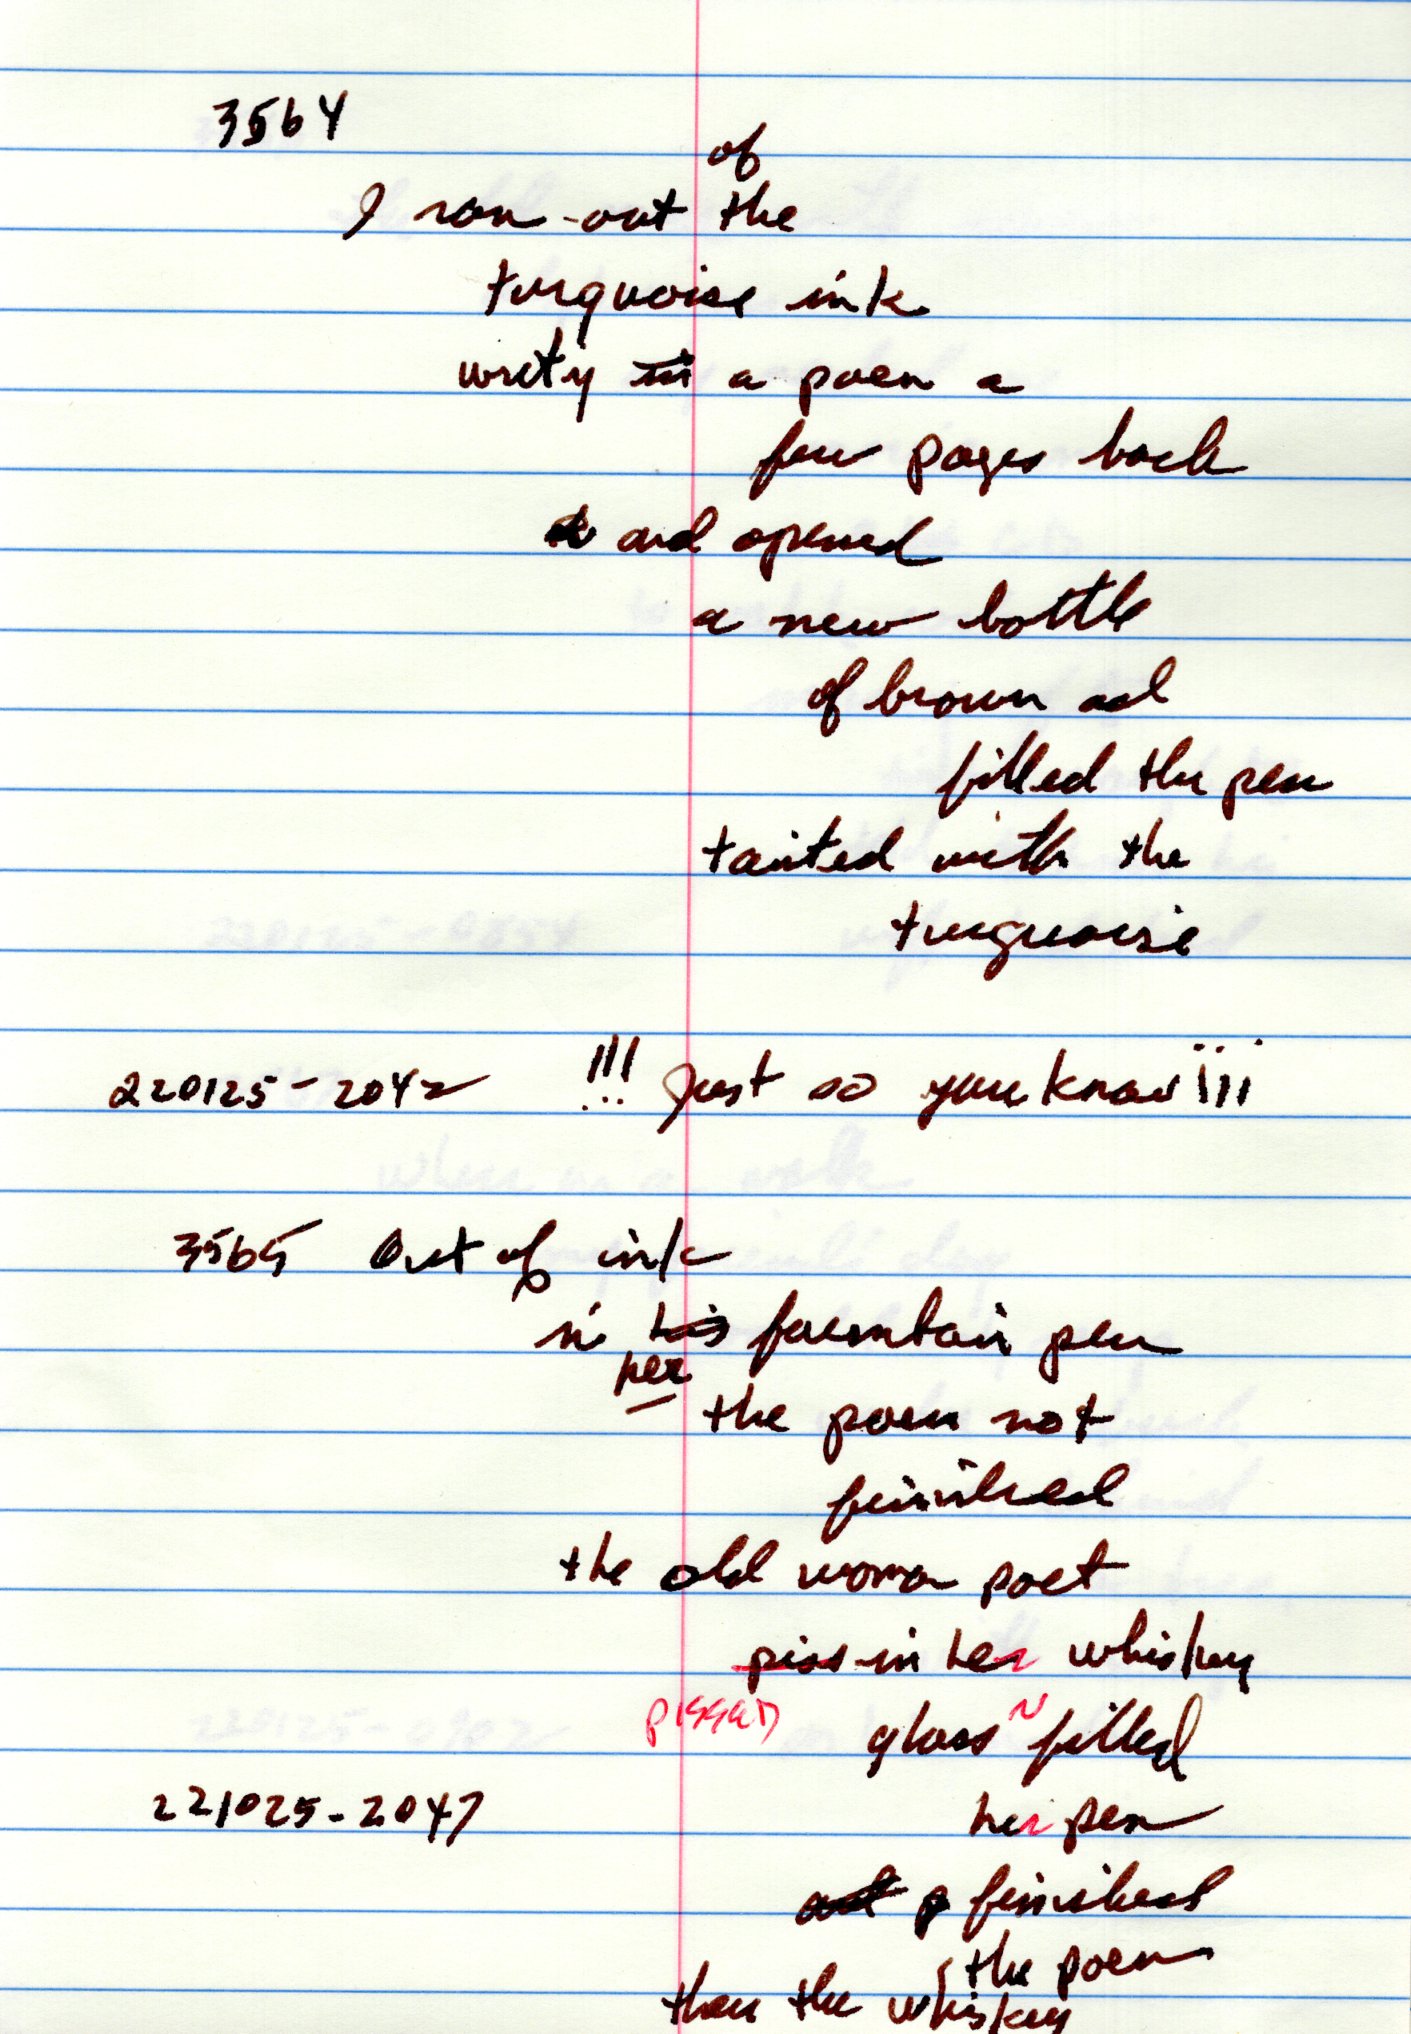 3564
of
I ran-out the
turquoise ink
writy in a poem a
few pages back
and opened
a new bottle
of brown and
filled the pen
tainted with the
turquoise
220125-2042 !!! Just so you know ¡¡¡
3565 Out of ink
in his fountain pen
her
the poem not
finished
the old woman poet
piss in her whiskey
pissed
glass ~ filled
her pen
and finished
the poem
221025-2047
then the whiskey